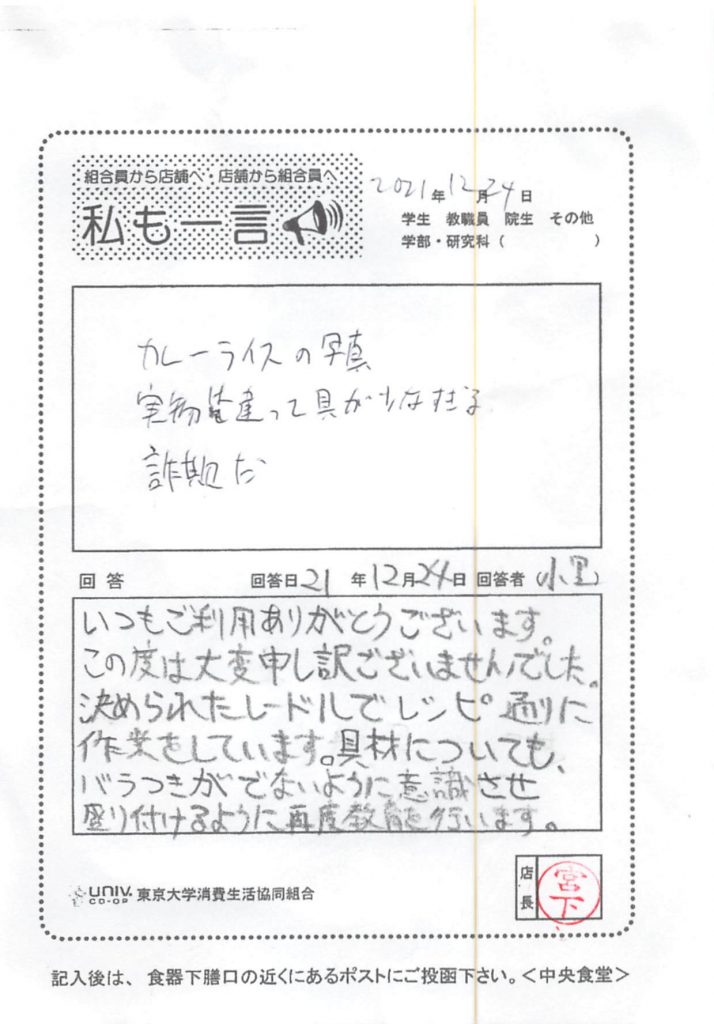 組合員から店舗へ・店舗から組合員へ
私も一言
2021年12月24日
学生 教職員 院生 その他
学部・研究科( )
カレーライスの写真
実物と違って具が少なすぎる
詐欺だ
回答 回答日21年12月24日 回答者 小黒
いつもご利用ありがとうございます。
この度は大変申し訳ございませんでした。
決められたレードルでレシピ通りに
作業をしています。具材についても、
バラつきがでないように意識させ
盛り付けるように再度教育を行います。
UNIV. CO-OP 東京大学消費生活協同組合
店長 宮下
記入後は、食器下膳口の近くにあるポストにご投函下さい。<中央食堂>